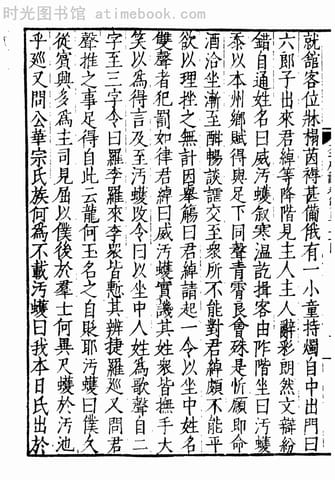 時光图书馆 atimebook.com
就館客位牀榻茵褥甚備俄有一小童持燭自中出門曰
六郎子出來君綽等降階見主人主人辭彩朗然文辯紛
錯自通姓名曰威汚蠖叙寒温訖揖客由阼階坐曰汚蠖
忝以本州鄉賦得與足下同聲青霄良會殊是忻願即命
酒洽坐漸至酣暢談謔交至衆所不能對君綽頗不能平
欲以理挫之無計因舉觴曰君綽請起一令以坐中姓名
雙聲者犯罰如律君綽曰威汚蠖實譏其姓衆皆撫手大
笑以爲得言及至汚蠖改令曰以坐中人姓爲歌聲自二
字至三字令曰羅李羅來李衆皆慙其辨捷羅巡又問君
聲推之事足得自比云龍何玉名之自貶耶汚蠖曰僕久
從賓興多爲主司見屈以僕後於羣士何異尺蠖於汚池
乎巡又問公華宗氏族何爲不載汚蠖曰我本日氏出於